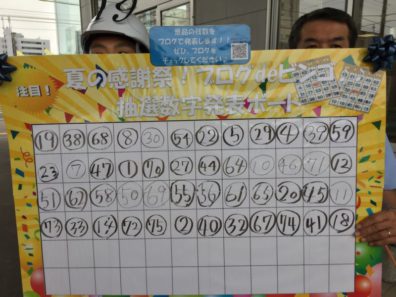 景品の抽数を
ブログで発表します!!
ぜひ、ブログを
チェックしてください。
注目!
夏の感謝祭!ブログdeビンゴ
抽選数字発表ボード
19 38 68 8 30 54 22 5 29 4 39 59
23 7 47 1 70 27 44 64 10 46 71 12
51 62 58 50 69 55 36 61 63 20 45 11
73 33 14 72 75 2 40 32 67 74 41 18